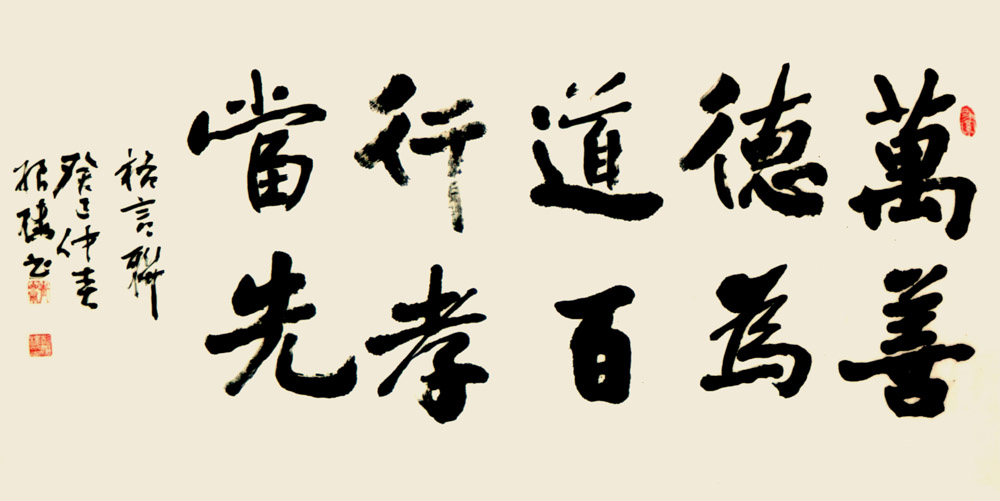 萬善
德為
道百
行孝
當先
格言聯
癸巳仲春
書